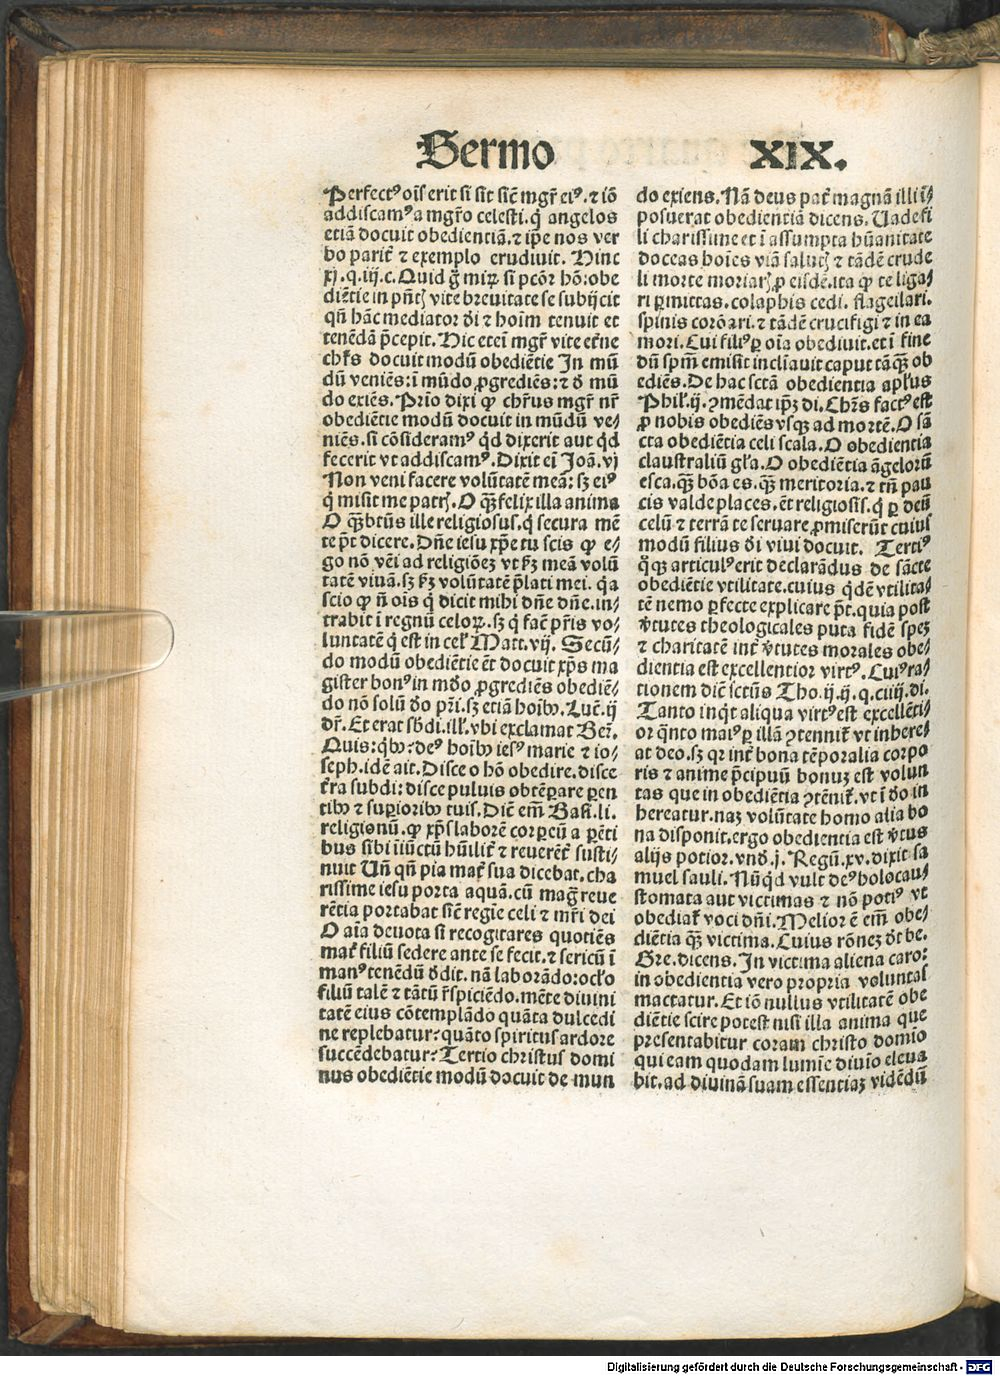 Sermo XIX.
Perfectꝰ oīs erit si sit sic̄ mgr̄ eiꝰ. ⁊ iō
addiscamꝰ a mgr̄o celesti. q̇ angelos
etiā docuit obedientiā. ⁊ ip̄e nos ver
bo parit̄ ⁊ exemplo erudiuit. Hinc
xj. q. iij. c. Quid g̈ miꝝ si pctōr hō: obe
diētie in pn̄tꝭ vite breuitate se subijcit
qn̄ hāc mediator d̄i ⁊ hoīm tenuit et
tenēdā p̄cepit. Hic etei̅ mgr̄ vite et̄ne
chr̄s docuit modū obediētie In mū
dū veniēs: ī mūdo ꝓgrediēs: ⁊ d̄ mū
do exiēs. Prīo dixi ꝙ chr̄us mgr̄ nr̄
obediētie modū docuit in mūdū ve⸗
niēs. si cōsideramꝰ qd̄ dixerit aut qd̄
fecerit vt addiscamꝰ. Dixit ei̅ Joā. vj
Non veni facere volūtatē meā: sꝫ eiꝰ
q̇ misit me patrꝭ. O qꝫ̄ felix illa anima
O qꝫ̄ btūs ille religiosus. q̇ secura mē
te p̄t dicere. Dn̄e iesu xp̄e tu scis ꝙ e⸗
go nō vēi ad religiōeꝫ vt ẜꝫ meā volū
tatē viuā. sꝫ ẜꝫ volūtatē p̄lati mei. q̇a
scio ꝙ n̄ oīs q̇ dicit mihi dn̄e dn̄e. in⸗
trabit ī regnū celoꝝ. sꝫ q̇ fac̄ pr̄is vo⸗
luntatē q̇ est in cel̄ Matt. vij. Secū⸗
do modū obediētie et̄ docuit xp̄s ma
gister bonꝰ in mūdo ꝓgrediēs obediē⸗
do nō solū deo pr̄i. sꝫ etiā hoībꝰ. Luc̄. ij
dr̄. Et erat sb̄di. ill̄. vbi exclamat Ber̄.
Quis: qͥbꝰ: deꝰ hoībꝰ iesꝰ marie ⁊ io⸗
seph. idē ait. Disce o hō obedire. disce
t̄ra subdi: disce puluis obtēꝑare ꝑen
tibꝰ ⁊ suꝑioribꝰ tuis. Dic̄ em̄ Basi. li.
religionū. ꝙ xp̄s laborē corꝑeū a ꝑēti
bus sibi iūctū hūilit̄ ⁊ reuerēt̄ susti⸗
nuit Un̄ qn̄ pia mat̄ sua dicebat. cha
rissime iesu porta aquā. cū mag̈ reue
rētia portabat sic̄ regie celi ⁊ mr̄i dei
O aīa deuota si recogitares quotiēs
mat̄ filiū sedere ante se fecit. ⁊ sericū ī
manꝰ tenēdū d̄dit. nā laborādo: oclo
filiū talē ⁊ tātū r̄spiciēdo. mēte diuini
tatē eius cōtemplādo quāta dulcedi
ne replebatur: quāto spiritus ardore
succēdebatur: Tertio christus domi
nus obediētie modū docuit de mun
do exiens. Nā deus pat̄ magnā illi ī⸗
posuerat obedientiā dicens. Uade fi
li charissime et ī assumpta hūanitate
doceas hoīes viā salutꝭ ⁊ tādē crude
li morte moriarꝭ ꝓ eisdē. ita ꝙ te liga⸗
ri ꝑmittas. colaphis cedi. flagellari.
spinis corōari. ⁊ tādē crucifigi ⁊ in ea
mori. Cui filiꝰ ꝑ oīa obediuit. et ī fine
dū spm̄ emisit inclīauit caput tāqꝫ̄ ob
ediēs. De hac sctā obedientia apl̄us
Phil̄. ij. ꝯmēdat ip̄ꝫ di. Chr̄s factꝰ est
ꝓ nobis obediēs vsqꝫ ad mortē. O sā
cta obediētia celi scala. O obedientia
claustraliū gl̄a. O obediētia āgelorū
esca. qꝫ̄ bōa es. qꝫ̄ meritoria. ⁊ tn̄ pau
cis valde places. et̄ religiosis. q̇ ꝑ deū
celū ⁊ terrā te seruare ꝓmiserūt cuius
modū filius d̄i viui docuit. Tertiꝰ
q̇qꝫ articulꝰ erit declarādus de sācte
obediētie vtilitate. cuius q̇dē vtilita⸗
tē nemo ꝑfecte explicare p̄t. quia post
v̄tutes theologicales puta fidē speꝫ
⁊ charitatē int̄ v̄tutes morales obe⸗
dientia est excellentior virtꝰ. Cuiꝰ ra⸗
tionem dic̄ sctūs Tho. ij. ij. q. ciiij. di.
Tanto inq̇t aliqua virtꝰ est excellēti⸗
or q̇nto maiꝰ ꝑ illā ꝯtennit̄ vt inhere⸗
at deo. sꝫ qr int̄ bona tēporalia corpo
ris ⁊ anime p̄cipuū bonuꝫ est volun
tas que in obediētia ꝯtēnit̄. vt ī deo in
hereatur. naꝫ volūtate homo alia bo
na disponit. ergo obedientia est v̄tus
alijs potior. vnd̄. j. Regū. xv. dixit sa
muel sauli. Nūqd̄ vult deꝰ holocau⸗
stomata aut victimas ⁊ nō potiꝰ vt
obediat̄ voci dn̄i. Melior ē em̄ obe⸗
diētia qꝫ̄ victima. Cuius rōneꝫ d̄t be.
Gre. dicens. In victima aliena caro:
in obedientia vero propria voluntas
mactatur. Et iō nullus vtilitatē obe
diētie scire potest nisi illa anima que
presentabitur coram christo domīo
qui eam quodam lumīe diuīo eleua
bit. ad diuinā suam essentiaꝫ vidēdū
Digitalisierung gefördert durch die Deutsche Forschungsgemeinschaft - DFG